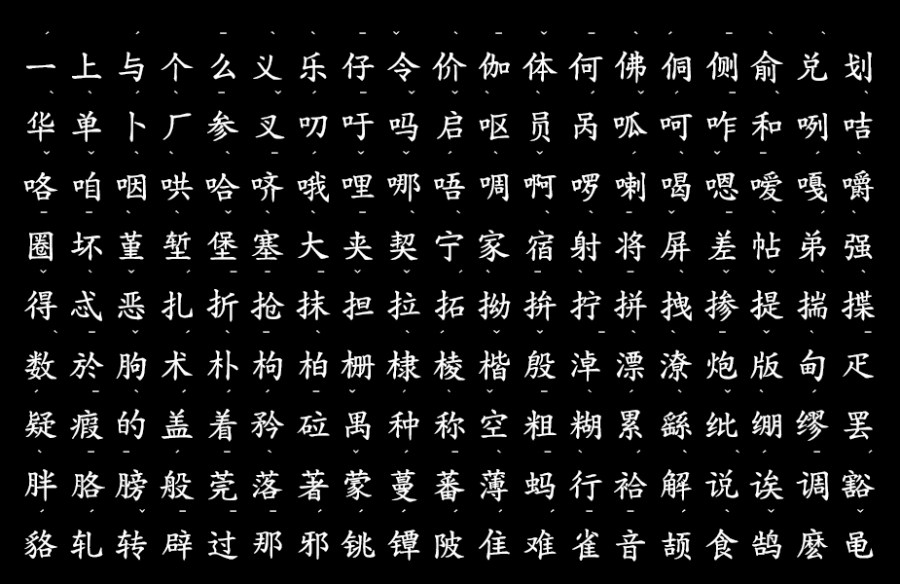 一上与个么义乐仔令价伽体何佛侗侧俞兑划
华单卜厂参叉叨吁吗启呕员呙呱呵咋和咧咭
咯咱咽哄哈哜哦哩哪唔啁啊啰喇喝嗯嗳嘎嚼
圈坏堇堑堡塞大夹契宁家宿射将屏差帖弟强
得忒恶扎折抢抹担拉拓拗拚拧拼拽掺提揣揲
数於朐术朴枸柏栅棣棱楷殷淖漂潦炮版甸疋
疑瘕的盖着矜砬禺种称空粗糊累繇纰绷缪罢
胖胳膀般莞落著蒙蔓蕃薄蚂行袷解说诶调豁
貉轧转辟过那邪铫镡陂隹难雀音颉食鹄麽黾